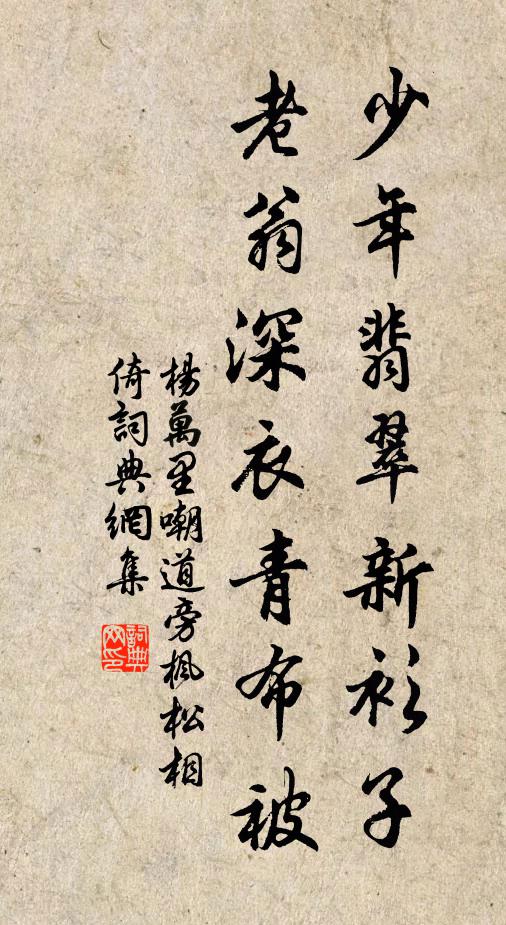 少年翡翠新衫子
老翁深衣青布被
楊萬里嘲道旁楓松相
倚詞典網集
詞典
网印